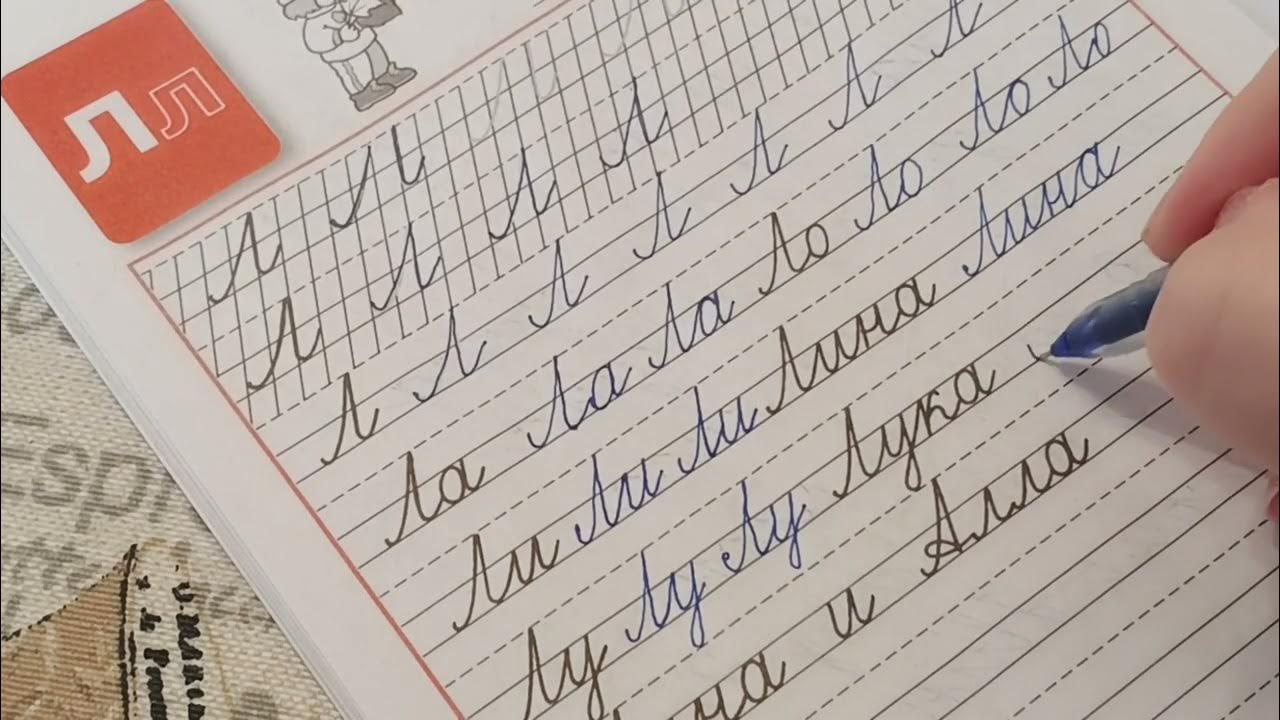 Л л
Л Л
Л Л Л Л
Л Л Л Л Л Л Л
Ла Ла Ла Ло Ло Ло Ло
Ли Ли Ли Лина Лина
Лу Лу Лу Лука
на и Алла